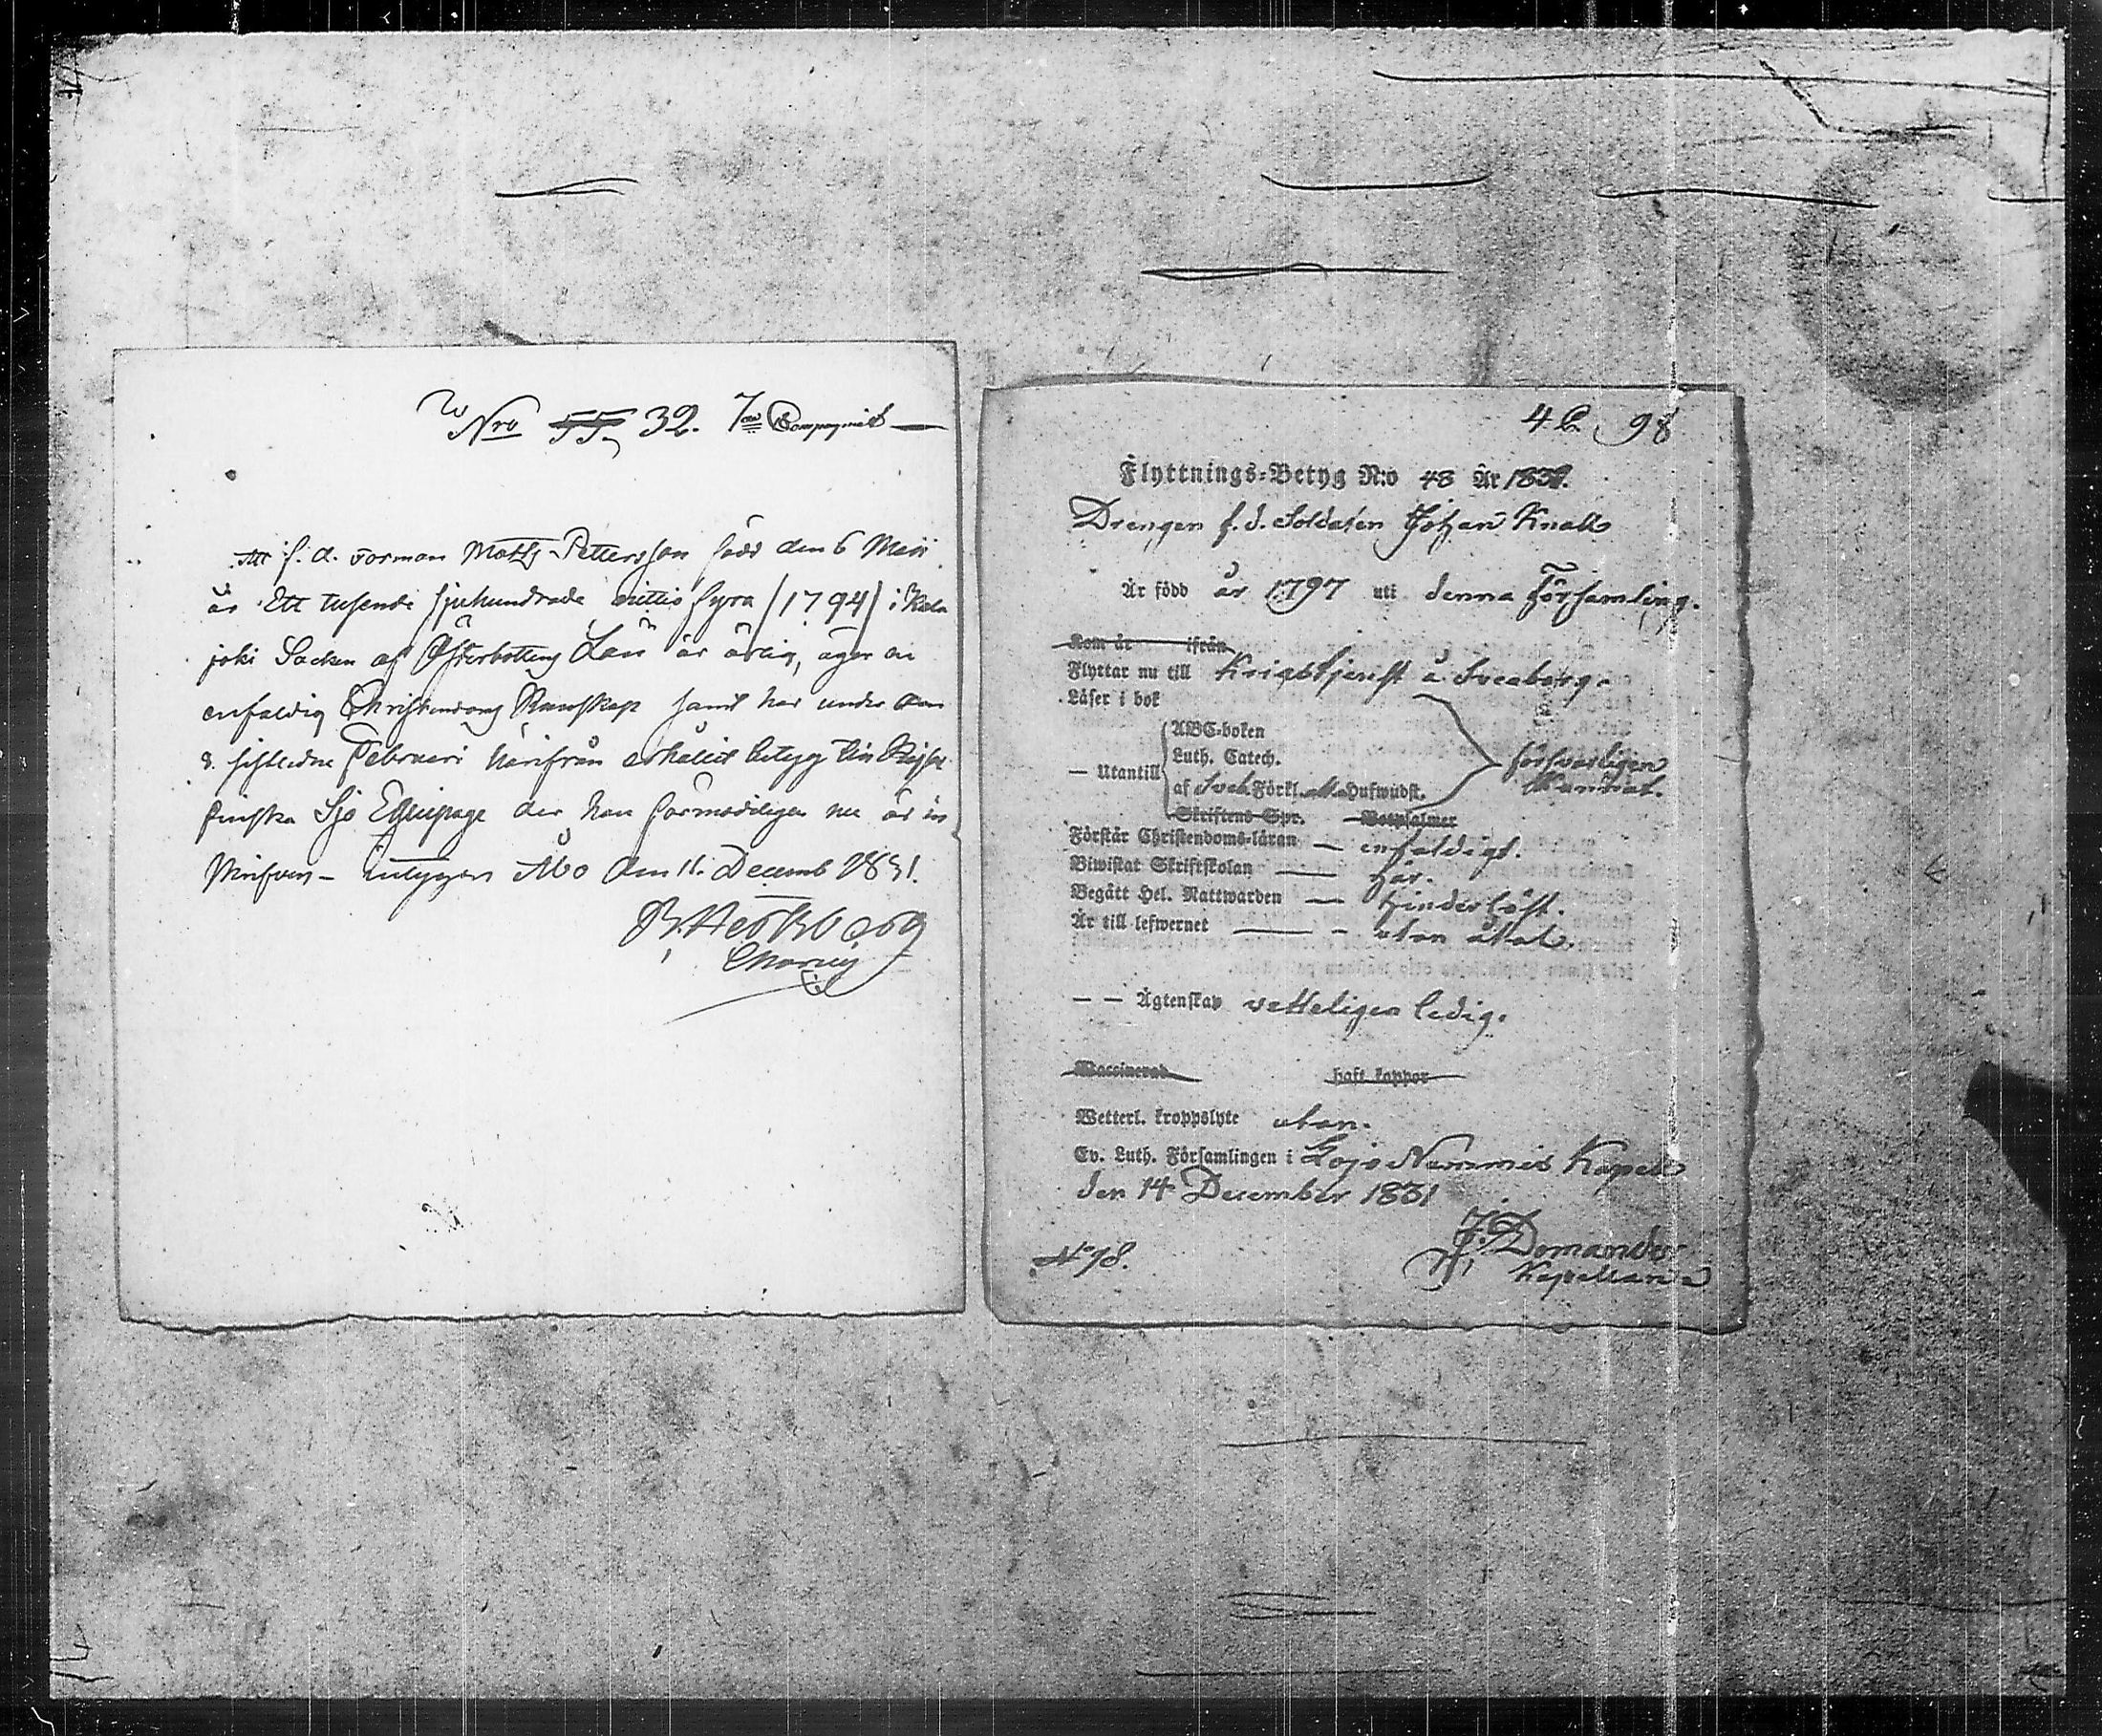 Nro 55. 32. 7de Compagniet
Att f. d. vorman Matts Pettersson född den 6 Maii
år Ett tusende sjuhundrade nittio fyra (1794) i Kala
joki Socken af Österbottens Län är ärlig, äger en
enfaldig Christendoms Kunskap samt har under den
8. sistledne Februari härifrån erhållit betyg till Ryska
finska Sjö Equipage der han förmodeligen nu är in
skrifven – intygar Åbo den 11. Decemb 1831.
4 C. 98
Flyttnings-Betyg N:o 48 År 1831.
Drengen f. d. Soldaten Johan Knall
Är född år 1797 uti denna Församling.
Kom år ifrån
Flyttar nu till Krigstjenst å Sveaborg.
Läser i bok
ABC-boken
Luth. Catech.
— Utantill
af Sveb. Förkl. Hufwudst.
försvarligen
Skriftens Spr. Botpsalmer
Förstår Christendoms-läran — enfaldigt.
Biwistat Skriftskolan — här.
Begått Hel. Nattwarden — hinderlöst.
Är till lefwernet — utan åtal.
— — Ägtenskap vetteligen ledig.
Waccinerad haft koppor
Wetterl. kroppslyte utan.
Ev. Luth. Församlingen i Lojo Nummis Kapell
den 14 December 1831
J. Domander
Kapellan
No 98.